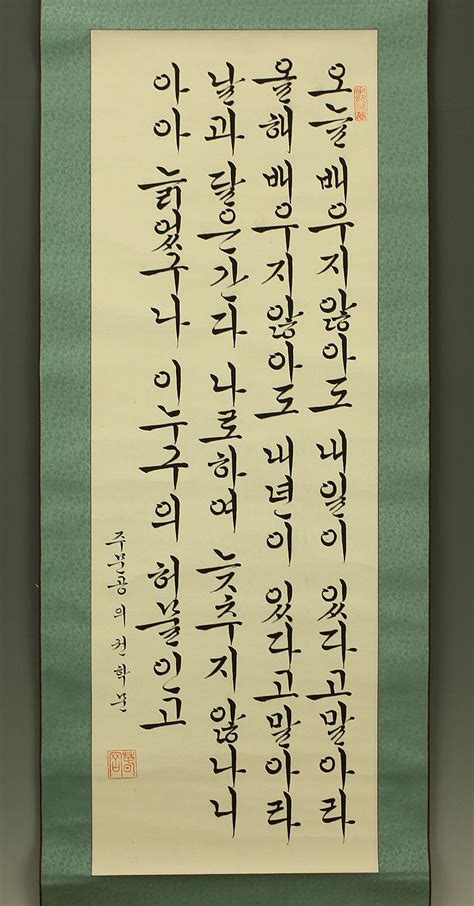 오늘 배우지 않아도 내일이 있다고 말아라
올해 배우지 않아도 내년이 있다고 말아라
날과 달은 간다 나로 하여 늦추지 않나니
아아 늙었구나 이 누구의 허물인고
주문공의 권학문